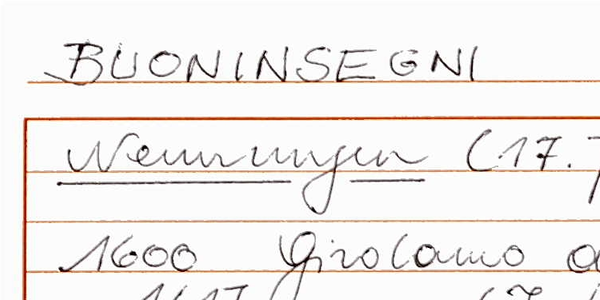 BUONINSEGNI
Nennungen (17.
1600 Girolamo